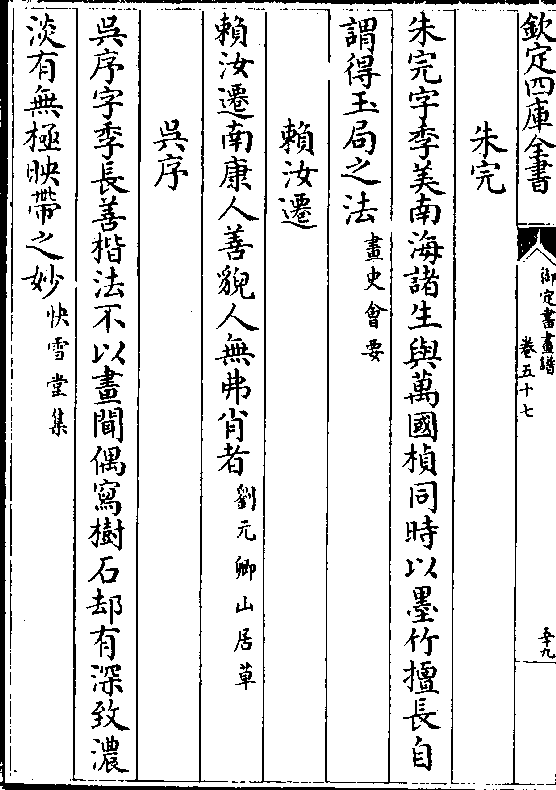 欽定四庫全書
御定書畫譜
卷五十七
五十九
朱完
朱完字季美南海諸生與萬國楨同時以墨竹擅長自
謂得玉局之法畫史會要
賴汝遷
賴汝遷南康人善貌人無弗肖者劉元卿山居草
吳序
吳序字季長善楷法不以畫聞偶寫樹石却有深致濃
淡有無極映帶之妙快雪堂集